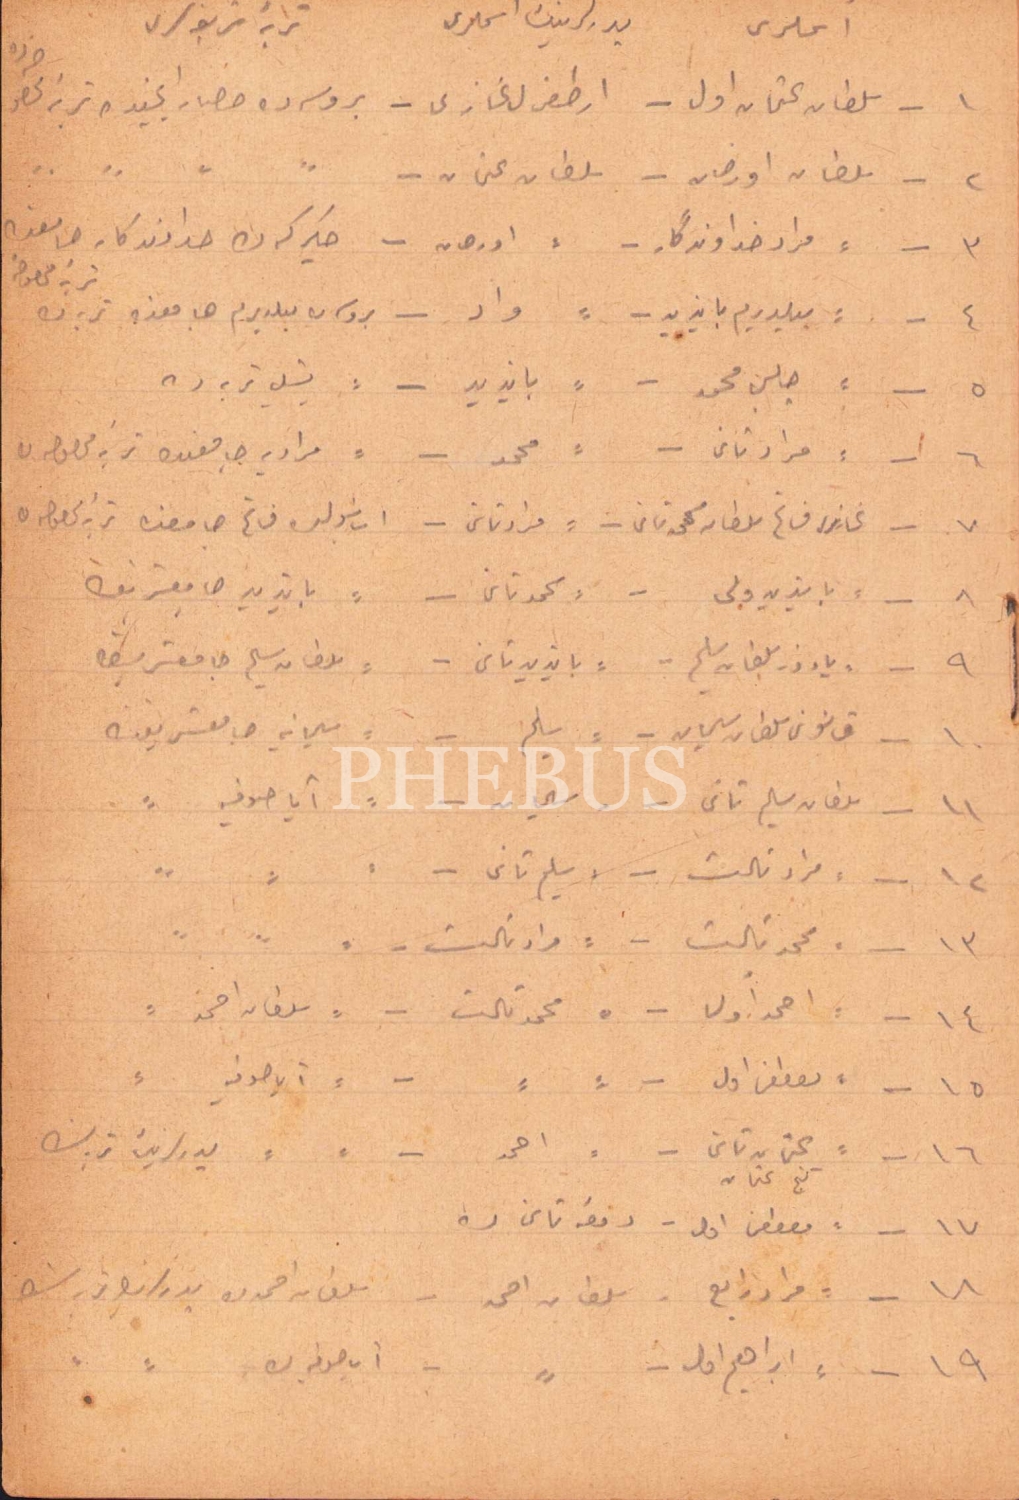 اسملری پدرلرینك اسملری
١ – سلطان عثمان اول – ارطغرل غازی – بروسه ده حصار ایچنده تربهٔ
٢ – سلطان اورخان – سلطان عثمان – " " " "
٣ – " مراد خداوندگار – " اورخان – چكیركه ده خداوندكار جامعنده
تربهٔ مخصوصه
٤ – " ییلدیریم بایزید – " مراد – بروسه ییلدیریم جامعنده تربه ده
٥ – " چلبی محمد – " بایزید – " یشیل تربه ده
٦ – " مراد ثانی – " محمد – " مرادیه جامعنده تربهٔ مخصوصه ده
٧ – غازی فاتح سلطان محمد ثانی – " مراد ثانی – استانبولده فاتح جامعنده تربهٔ مخصوصه ده
٨ – " بایزید ولی – " محمد ثانی – " بایزید جامع شریفنده
٩ – " یاووز سلطان سلیم – " بایزید ثانی – " سلطان سلیم جامع شریفنده
١٠ – قانونی سلطان سلیمان – " سلیم – " سلیمانیه جامع شریفنده
PHEBUS
١١ – سلطان سلیم ثانی – " سلیمان – " آیا صوفیه "
١٢ – " مراد ثالث – " سلیم ثانی – " " "
١٣ – " محمد ثالث – " مراد ثالث – " " "
١٤ – " احمد اول – " محمد ثالث – " سلطان احمد "
١٥ – " مصطفی اول – " " – " آیا صوفیه "
١٦ – " عثمان ثانی – " احمد – " " پدرلرینك تربه سنده
كنج عثمان
١٧ – " مصطفی اول – دفعهٔ ثانی ده
١٨ – " مراد رابع – سلطان احمد – سلطان احمد ده پدرلرینك تربه سنده
١٩ – " ابراهیم اول – " – آیا صوفیه ده " "